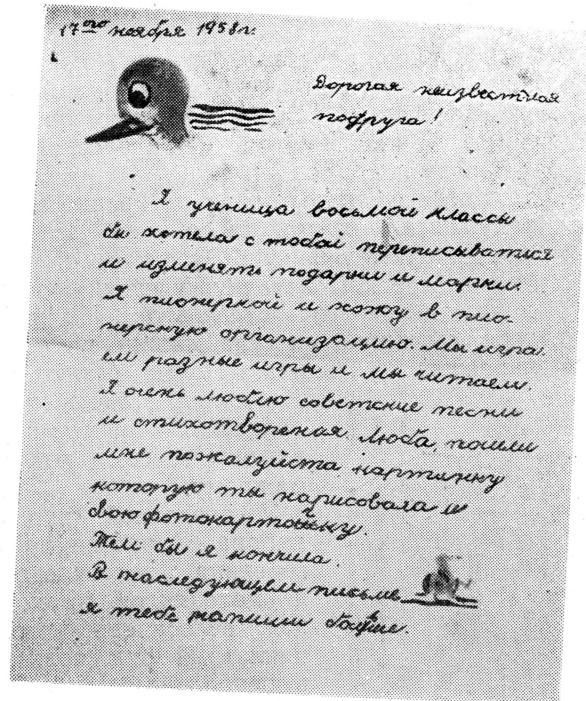 17ого ноября 1958 г.
Дорогая неизвестная
подруга!
Я ученица восьмой классы
бы хотела с тобой переписываться
и изменять подарки и марки.
Я пионеркой и хожу в пио-
нерскую организацию. Мы игра
ем разные игры и мы читаем.
Я очень люблю советские песни
и стихотворения. Люба, пошли
мне пожалуйста картинку
которую ты нарисовала и
свою фотокарточку.
Тем бы я кончила.
В последующем письме
я тебе напишы больше.